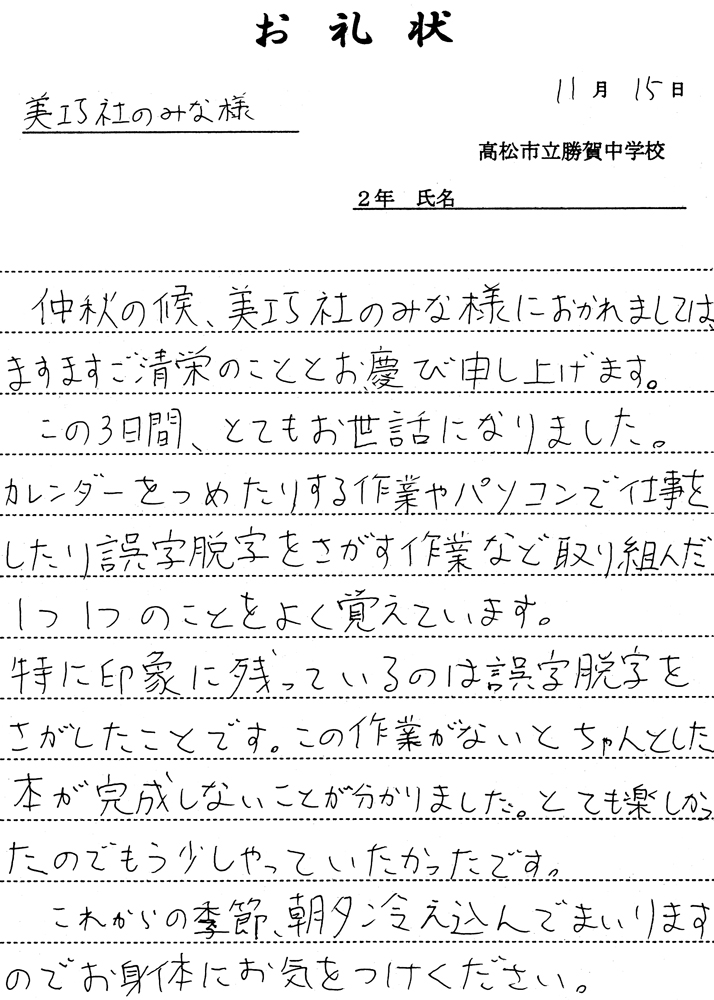 お礼状
11月 15日
美巧社のみな様
高松市立勝賀中学校
2年 氏名
仲秋の候、美巧社のみな様におかれましては、
ますますご清栄のこととお慶び申し上げます。
この3日間、とてもお世話になりました。
カレンダーをつめたりする作業やパソコンで仕事を
したり誤字脱字をさがす作業など取り組んだ
1つ1つのことをよく覚えています。
特に印象に残っているのは誤字脱字を
さがしたことです。この作業がないとちゃんとした
本が完成しないことが分かりました。とても楽しかっ
たのでもう少しやっていたかったです。
これからの季節、朝夕冷え込んでまいります
のでお身体にお気をつけください。